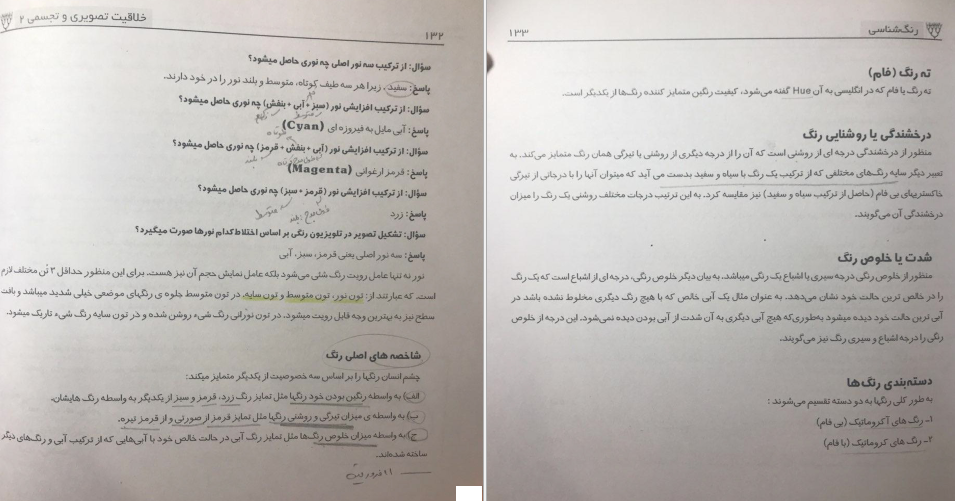 خلاقیت تصویری و تجسمی ۲
۱۳۲
سؤال: از ترکیب سه نور اصلی چه نوری حاصل میشود؟
پاسخ: سفید، زیرا هر سه طیف کوتاه، متوسط و بلند نور را در خود دارند.
سؤال: از ترکیب افزایشی نور (سبز + آبی + بنفش) چه نوری حاصل میشود؟
پاسخ: آبی مایل به فیروزه ای (Cyan)
سؤال: از ترکیب افزایشی نور (آبی + بنفش + قرمز) چه نوری حاصل میشود؟
پاسخ: قرمز ارغوانی (Magenta)
سؤال: از ترکیب افزایشی نور (قرمز + سبز) چه نوری حاصل میشود؟
پاسخ: زرد
سؤال: تشکیل تصویر در تلویزیون رنگی بر اساس اختلاط کدام نورها صورت میگیرد؟
پاسخ: سه نور اصلی یعنی قرمز، سبز، آبی
نور نه تنها عامل رویت رنگ شئی می‌شود بلکه عامل نمایش حجم آن نیز هست. برای این منظور حداقل ۳ تُن مختلف لازم
است. که عبارتند از: تون نور، تون متوسط و تون سایه. در تون متوسط جلوه ی رنگهای موضعی خیلی شدید میباشد و بافت
سطح نیز به بهترین وجه قابل رویت میشود. در تون نورانی رنگ شیء روشن شده و در تون سایه رنگ شیء تاریک میشود.
شاخصه های اصلی رنگ
چشم انسان رنگها را بر اساس سه خصوصیت از یکدیگر متمایز میکند:
الف) به واسطه رنگین بودن خود رنگها مثل تمایز رنگ زرد، قرمز و سبز از یکدیگر به واسطه رنگ هایشان.
ب) به واسطه ی میزان تیرگی و روشنی رنگها مثل تمایز قرمز از صورتی و از قرمز تیره.
ج) به واسطه میزان خلوص رنگ‌ها مثل تمایز رنگ آبی در حالت خالص خود با آبی‌هایی که از ترکیب آبی و رنگ‌های دیگر
ساخته شده‌اند.
رنگ‌شناسی
۱۳۳
ته رنگ (فام)
ته رنگ یا فام که در انگلیسی به آن Hue گفته می‌شود، کیفیت رنگین متمایز کننده رنگ‌ها از یکدیگر است.
درخشندگی یا روشنایی رنگ
منظور از درخشندگی درجه ای از روشنی است که آن را از درجه دیگری از روشنی یا تیرگی همان رنگ متمایز می‌کند. به
تعبیر دیگر سایه رنگ‌های مختلفی که از ترکیب یک رنگ با سیاه و سفید بدست می آید که میتوان آنها را با درجاتی از تیرگی
خاکستریهای بی فام (حاصل از ترکیب سیاه و سفید) نیز مقایسه کرد. به این ترتیب درجات مختلف روشنی یک رنگ را میزان
درخشندگی آن می‌گویند.
شدت یا خلوص رنگ
منظور از خلوص رنگی درجه سیری یا اشباع یک رنگی میباشد. به بیان دیگر خلوص رنگی، درجه ای از اشباع است که یک رنگ
را در خالص ترین حالت خود نشان می‌دهد. به عنوان مثال یک آبی خالص که با هیچ رنگ دیگری مخلوط نشده باشد در
آبی ترین حالت خود دیده میشود به‌طوری‌که هیچ آبی دیگری به آن شدت از آبی بودن دیده نمی‌شود. این درجه از خلوص
رنگی را درجه اشباع و سیری رنگ نیز می‌گویند.
دسته‌بندی رنگ‌ها
به طور کلی رنگها به دو دسته تقسیم می‌شوند :
۱- رنگ های آکروماتیک (بی فام)
۲- رنگ های کروماتیک (با فام)